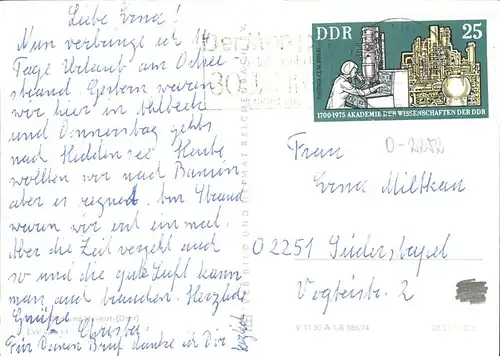 Liebe Erna!
Nun verbringe ich 14
Tage Urlaub am Ostsee-
strand. Gestern waren
wir hier in Ahlbeck
und Donnerstag gehts
nach Hiddensee. Heute
wollten wir nach Bansin
aber es regnet. Am Strand
waren wir erst ein mal.
Aber die Zeit vergeht auch
so und die gute Luft kann
man auch brauchen. Herzliche
Grüße
Für Deinen Brief danke ich Dir
herzlich
DDR 25
1700-1975 AKADEMIE DER WISSENSCHAFTEN DER DDR
Frau
O-2252
Erna Miltkau
O 2251 Süderstapel
Vogteistr. 2
BILD UND HEIMAT REICHENBACH
V 11 50 A 1/B 586/74